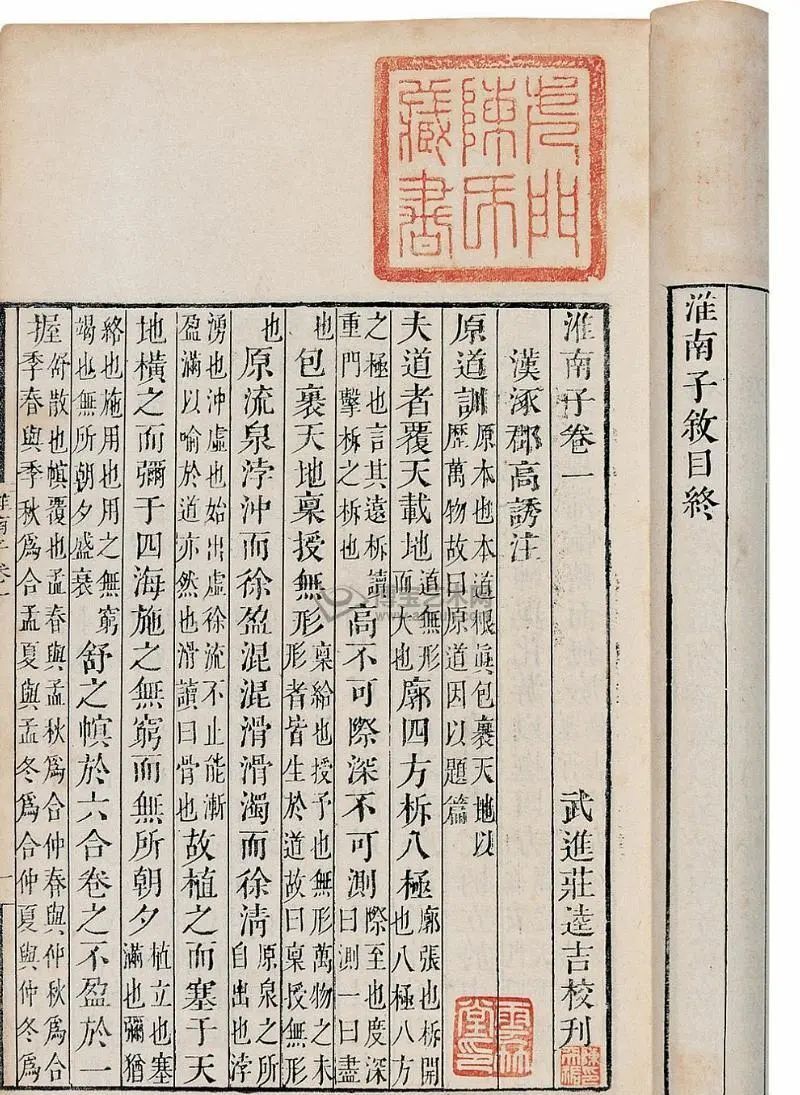 淮南子敘目終
陳氏藏書
淮南子卷一 武進莊逵吉校刊
漢涿郡高誘注
原道訓 原本也本道根眞包裹天地以歷萬物故曰原道因以題篇
夫道者覆天載地 道無形而大也 廓四方柝八極 廓張也柝開也八極八方
之極也言其遠柝讀重門擊柝之柝也 高不可際深不可測 際至也度深曰測一曰盡
也 包裹天地稟授無形 稟給也授予也無形萬物之未形者皆生於道故曰稟授無形
也 原流泉浡沖而徐盈混混滑滑濁而徐清 原泉之所自出也浡
湧也沖虛也始出虛徐流不止能漸盈滿以喻於道亦然也滑讀曰骨也 故植之而塞于天
地橫之而彌于四海施之無窮而無所朝夕 植立也塞滿也彌猶
絡也施用也用之無窮竭也無所朝夕盛衰 舒之幎於六合卷之不盈於一
握 舒散也幎覆也孟春與孟秋爲合仲春與仲秋爲合季春與季秋爲合孟夏與孟冬爲合仲夏與仲冬爲
淮南子卷一